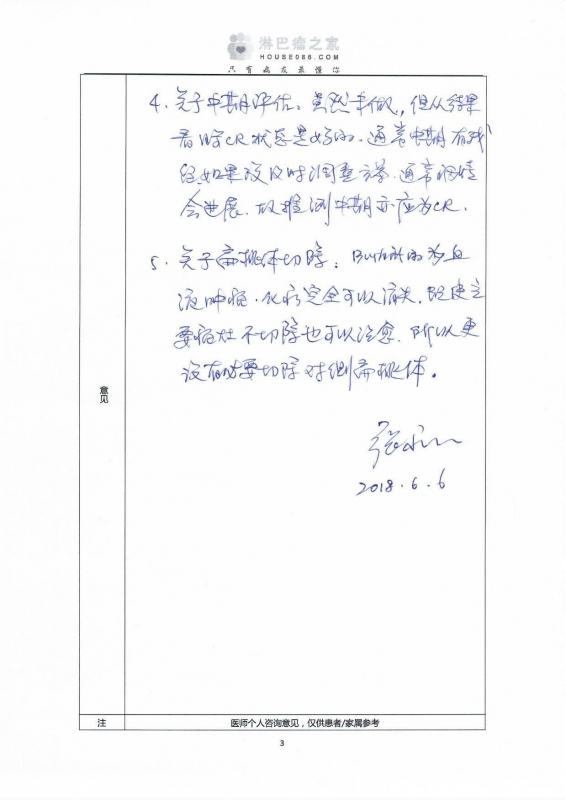 淋巴瘤之家
HOUSE086.COM
只有病友最懂你
4. 关于中期评估。虽然未做，但从结果
看目前CR状态是好的。通常中期有残
留如果没及时调整方案，通常病情
会进展。故推测中期亦应为CR.
5. 关于扁桃体切除：Burkitt因为血
液肿瘤，化疗完全可以消失，既使主
要病灶不切除也可以治愈，所以更
没有必要切除对侧扁桃体。
张
2018.6.6
意见
注
医师个人咨询意见，仅供患者/家属参考
3